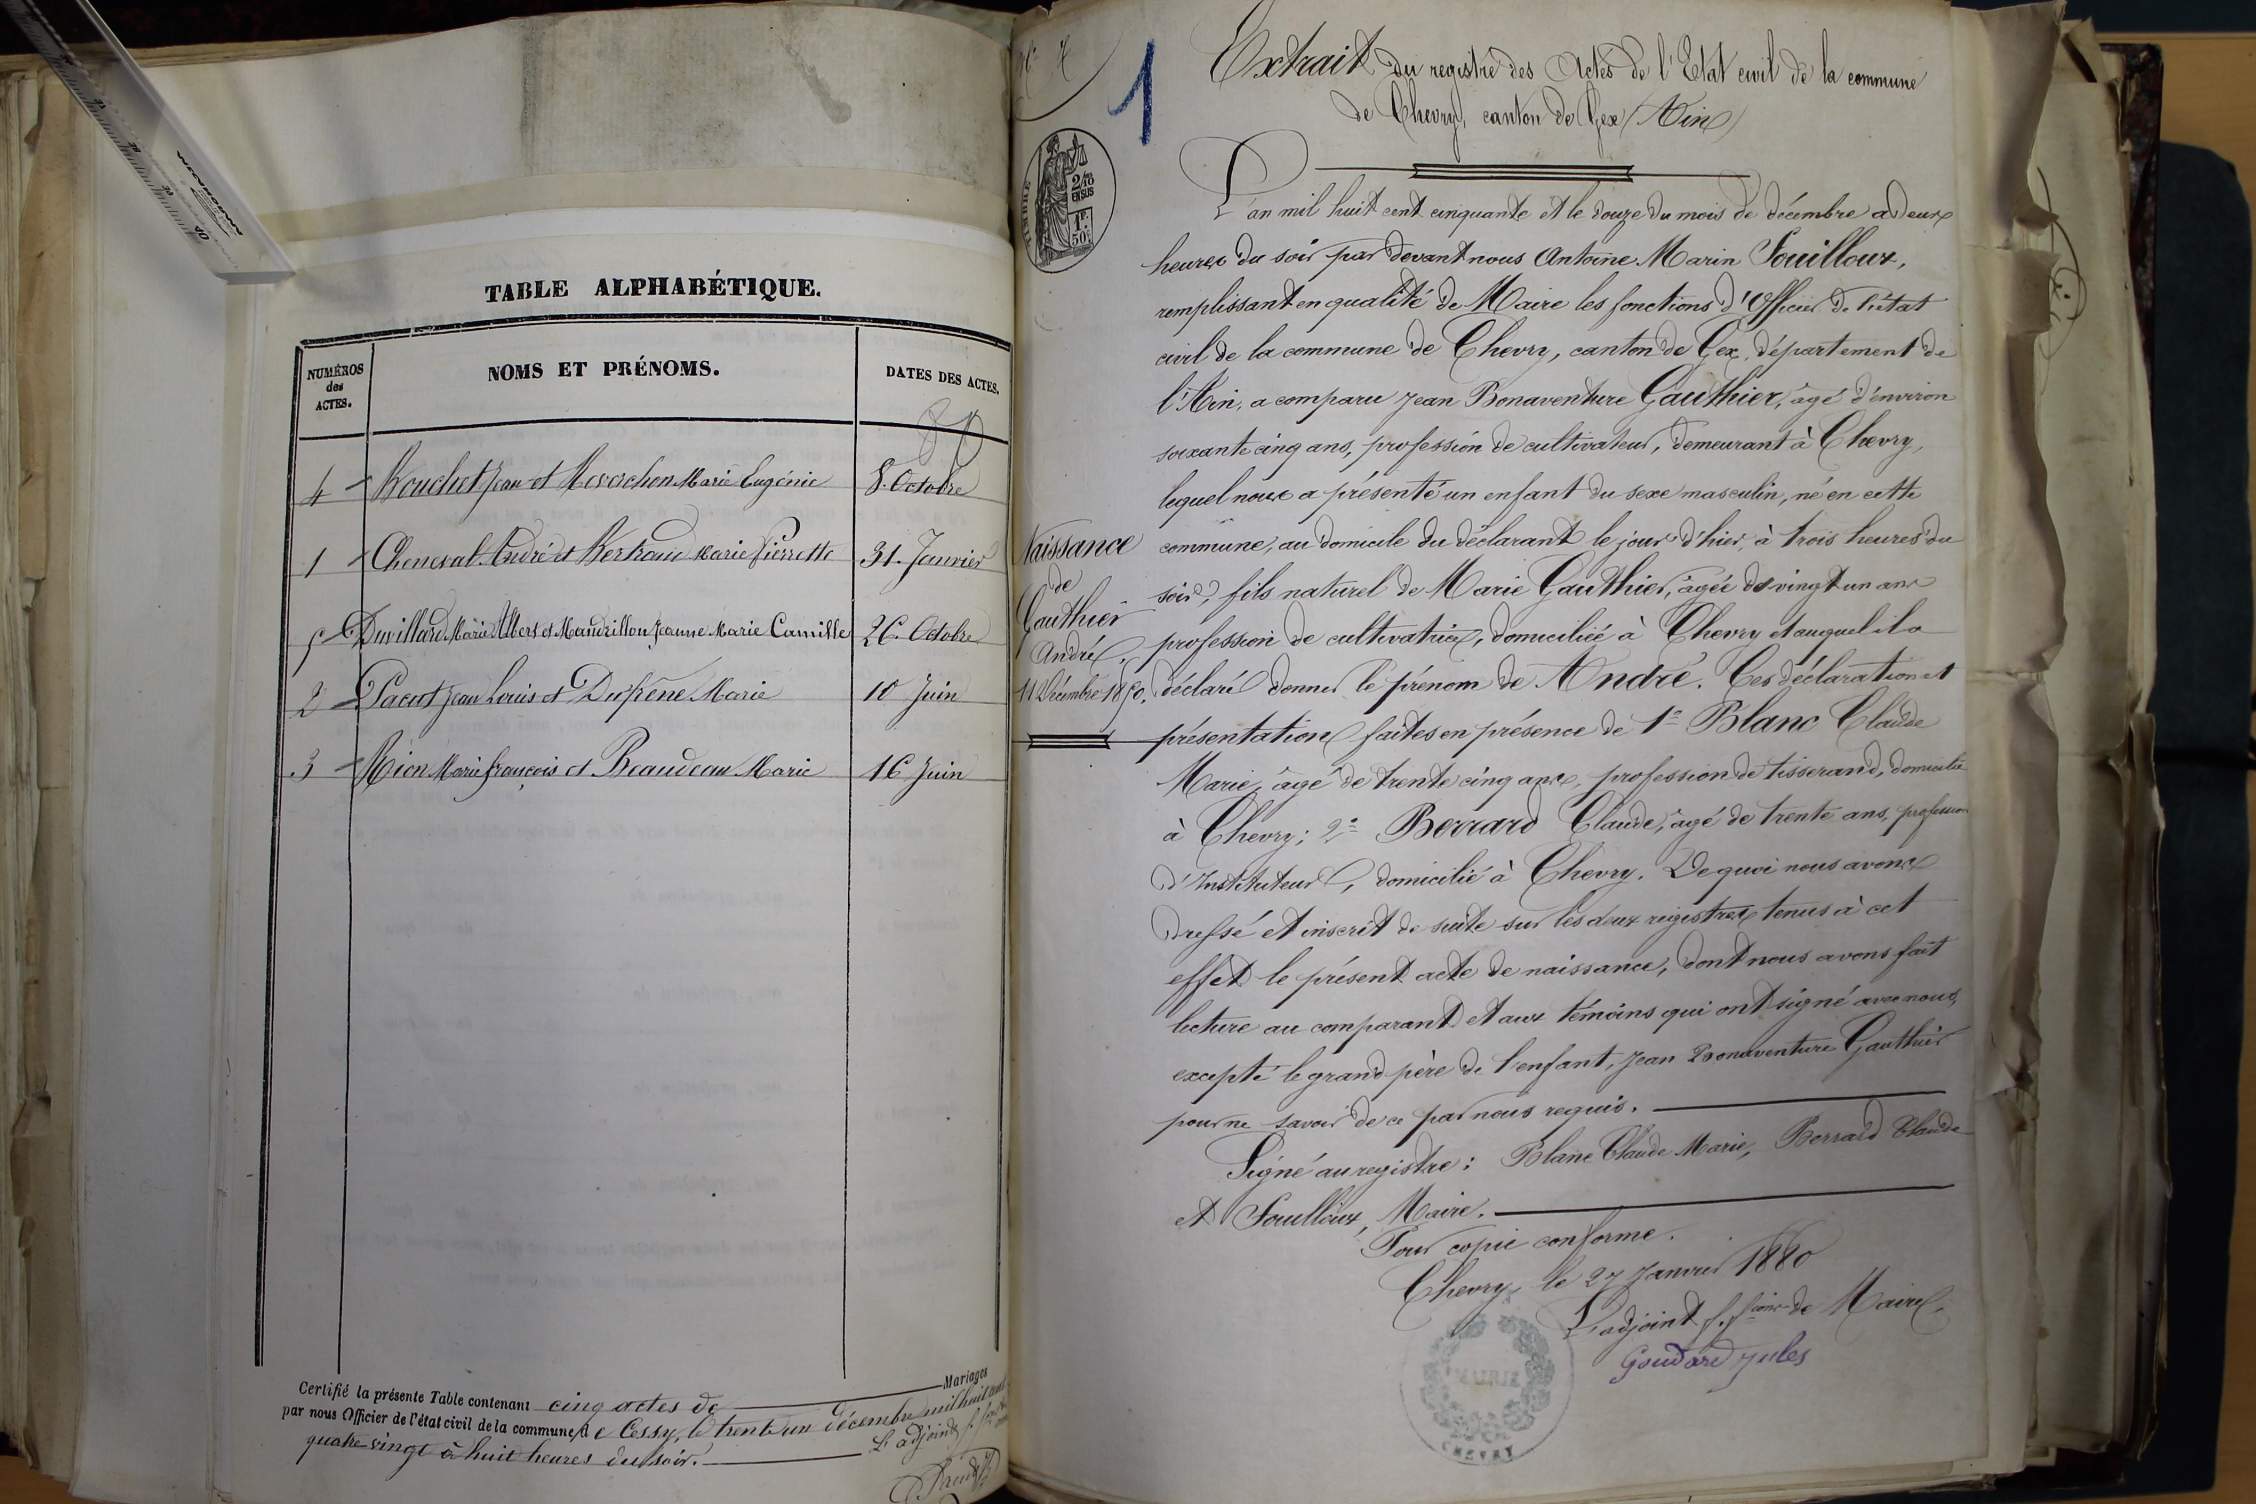 TABLE ALPHABÉTIQUE.
NUMÉROS
des
ACTES.
NOMS ET PRÉNOMS.
DATES DES ACTES.
80
4 Bouchet Jean et Marie Eugénie 8. Octobre
1 Cheneval André et Bertrand Marie Pierrette 31. Janvier
5 Duvillard Marie Albert et Mandrillon Jeanne Marie Camille 26. Octobre
2 Pacut Jean Louis et Dufrêne Marie 10 Juin
3 Rion Marie françois et Beaudeau Marie 16 Juin
Certifié la présente Table contenant cinq actes de Mariages
par nous Officier de l'état civil de la commune de Cessy, le trente un décembre mil huit cent
quatre vingt à huit heures du soir. L'adjoint
1
TIMBRE
2/10
EN SUS
1F
50c
Extrait du registre des Actes de l'Etat civil de la commune
de Chevry, canton de Gex (Ain)
L'an mil huit cent cinquante et le douze du mois de décembre a deux
heures du soir par devant nous Antoine Marin Fouilloux,
remplissant en qualité de Maire les fonctions d'Officier de l'état
civil de la commune de Chevry, canton de Gex, département de
l'Ain, a comparu Jean Bonaventure Gauthier, âgé d'environ
soixante cinq ans, profession de cultivateur, demeurant à Chevry,
lequel nous a présenté un enfant du sexe masculin, né en cette
commune, au domicile du déclarant le jour d'hier, à trois heures du
soir, fils naturel de Marie Gauthier, âgée de vingt un ans
profession de cultivatrice, domiciliée à Chevry et auquel il a
déclaré donner le prénom de André. Ces déclaration et
présentation faites en présence de 1° Blanc Claude
Marie, âgé de trente cinq ans, profession de tisserand, domicilié
à Chevry; 2° Berrard Claude, âgé de trente ans, profession
d'Instituteur, domicilié à Chevry. De quoi nous avons
dressé et inscrit de suite sur les deux registres tenus à cet
effet le présent acte de naissance, dont nous avons fait
lecture au comparant et aux témoins qui ont signé avec nous,
excepté le grand père de l'enfant, Jean Bonaventure Gauthier
pour ne savoir de ce par nous requis.
Signé au registre: Blanc Claude Marie, Berrard Claude
et Fouilloux, Maire.
Pour copie conforme.
Chevry, le 27 Janvier 1880
L'adjoint f. fions de Maire,
Goudard Jules
MAIRIE
CHEVRY
Naissance
de
Gauthier
André.
11 Décembre 1850.